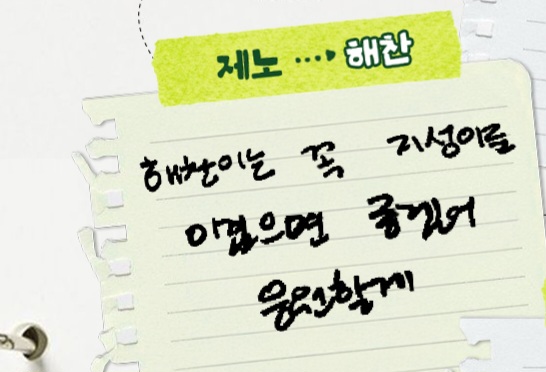 제노 ···▸ 해찬
해찬이는 꼭 지성이를
이겼으면 좋겠어
응원할게